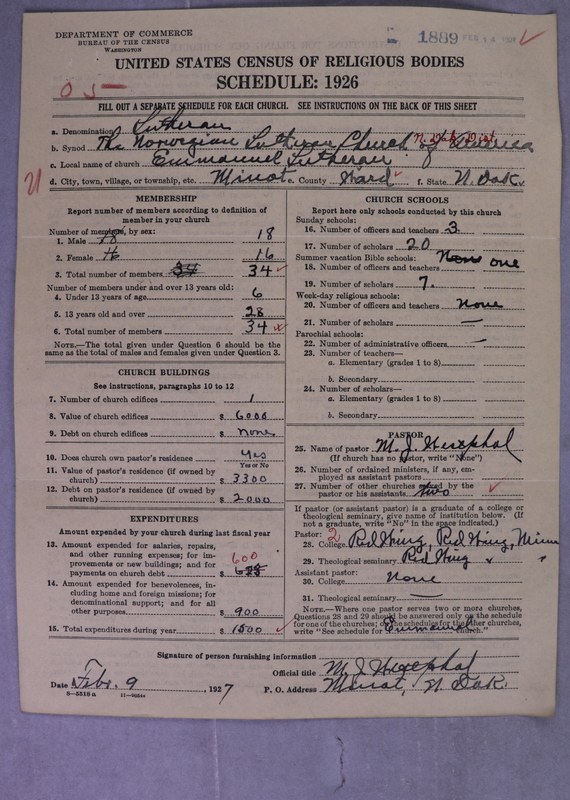 DEPARTMENT OF COMMERCE
BUREAU OF THE CENSUS
WASHINGTON
1889 FEB 14 1927
UNITED STATES CENSUS OF RELIGIOUS BODIES
SCHEDULE: 1926
05-
FILL OUT A SEPARATE SCHEDULE FOR EACH CHURCH. SEE INSTRUCTIONS ON THE BACK OF THIS SHEET
a. Denomination Lutheran
b. Synod The Norwegian Lutheran Church of America N. Dak. Dist.
c. Local name of church Emmanuel Lutheran
d. City, town, village, or township, etc. Minot e. County Ward f. State N. Dak.
MEMBERSHIP
Report number of members according to definition of member in your church
Number of members, by sex:
1. Male 18 18
2. Female 16 16
3. Total number of members 34 34
Number of members under and over 13 years old:
4. Under 13 years of age 6
5. 13 years old and over 28
6. Total number of members 34
NOTE.—The total given under Question 6 should be the same as the total of males and females given under Question 3.
CHURCH BUILDINGS
See instructions, paragraphs 10 to 12
7. Number of church edifices 1
8. Value of church edifices $ 6000
9. Debt on church edifices $ none
10. Does church own pastor's residence? Yes
Yes or No
11. Value of pastor's residence (if owned by church) $ 3300
12. Debt on pastor's residence (if owned by church) $ 2000
EXPENDITURES
Amount expended by your church during last fiscal year
13. Amount expended for salaries, repairs, and other running expenses; for improvements or new buildings; and for payments on church debt $ 600
14. Amount expended for benevolences, including home and foreign missions; for denominational support; and for all other purposes $ 900
15. Total expenditures during year $ 1500
CHURCH SCHOOLS
Report here only schools conducted by this church
Sunday schools:
16. Number of officers and teachers 3
17. Number of scholars 20
Summer vacation Bible schools:
18. Number of officers and teachers None one
19. Number of scholars 7.
Week-day religious schools:
20. Number of officers and teachers None
21. Number of scholars —
Parochial schools:
22. Number of administrative officers —
23. Number of teachers—
a. Elementary (grades 1 to 8)
b. Secondary
24. Number of scholars—
a. Elementary (grades 1 to 8)
b. Secondary
PASTOR
25. Name of pastor M. J. Westphal
(If church has no pastor, write "None")
26. Number of ordained ministers, if any, employed as assistant pastors
27. Number of other churches served by the pastor or his assistants two
If pastor (or assistant pastor) is a graduate of a college or theological seminary, give name of institution below. (If not a graduate, write "No" in the space indicated.)
Pastor: 2
28. College Red Wing, Red Wing, Minn
29. Theological seminary Red Wing " "
Assistant pastor:
30. College none
31. Theological seminary —
NOTE.—Where one pastor serves two or more churches, Questions 28 and 29 should be answered only on the schedule for one of the churches; on the schedules for the other churches, write "See schedule for Emmanuel church."
Signature of person furnishing information
Official title M. J. Westphal
Date Febr. 9, 1927 P. O. Address Minot, N. Dak.
8—5518 a